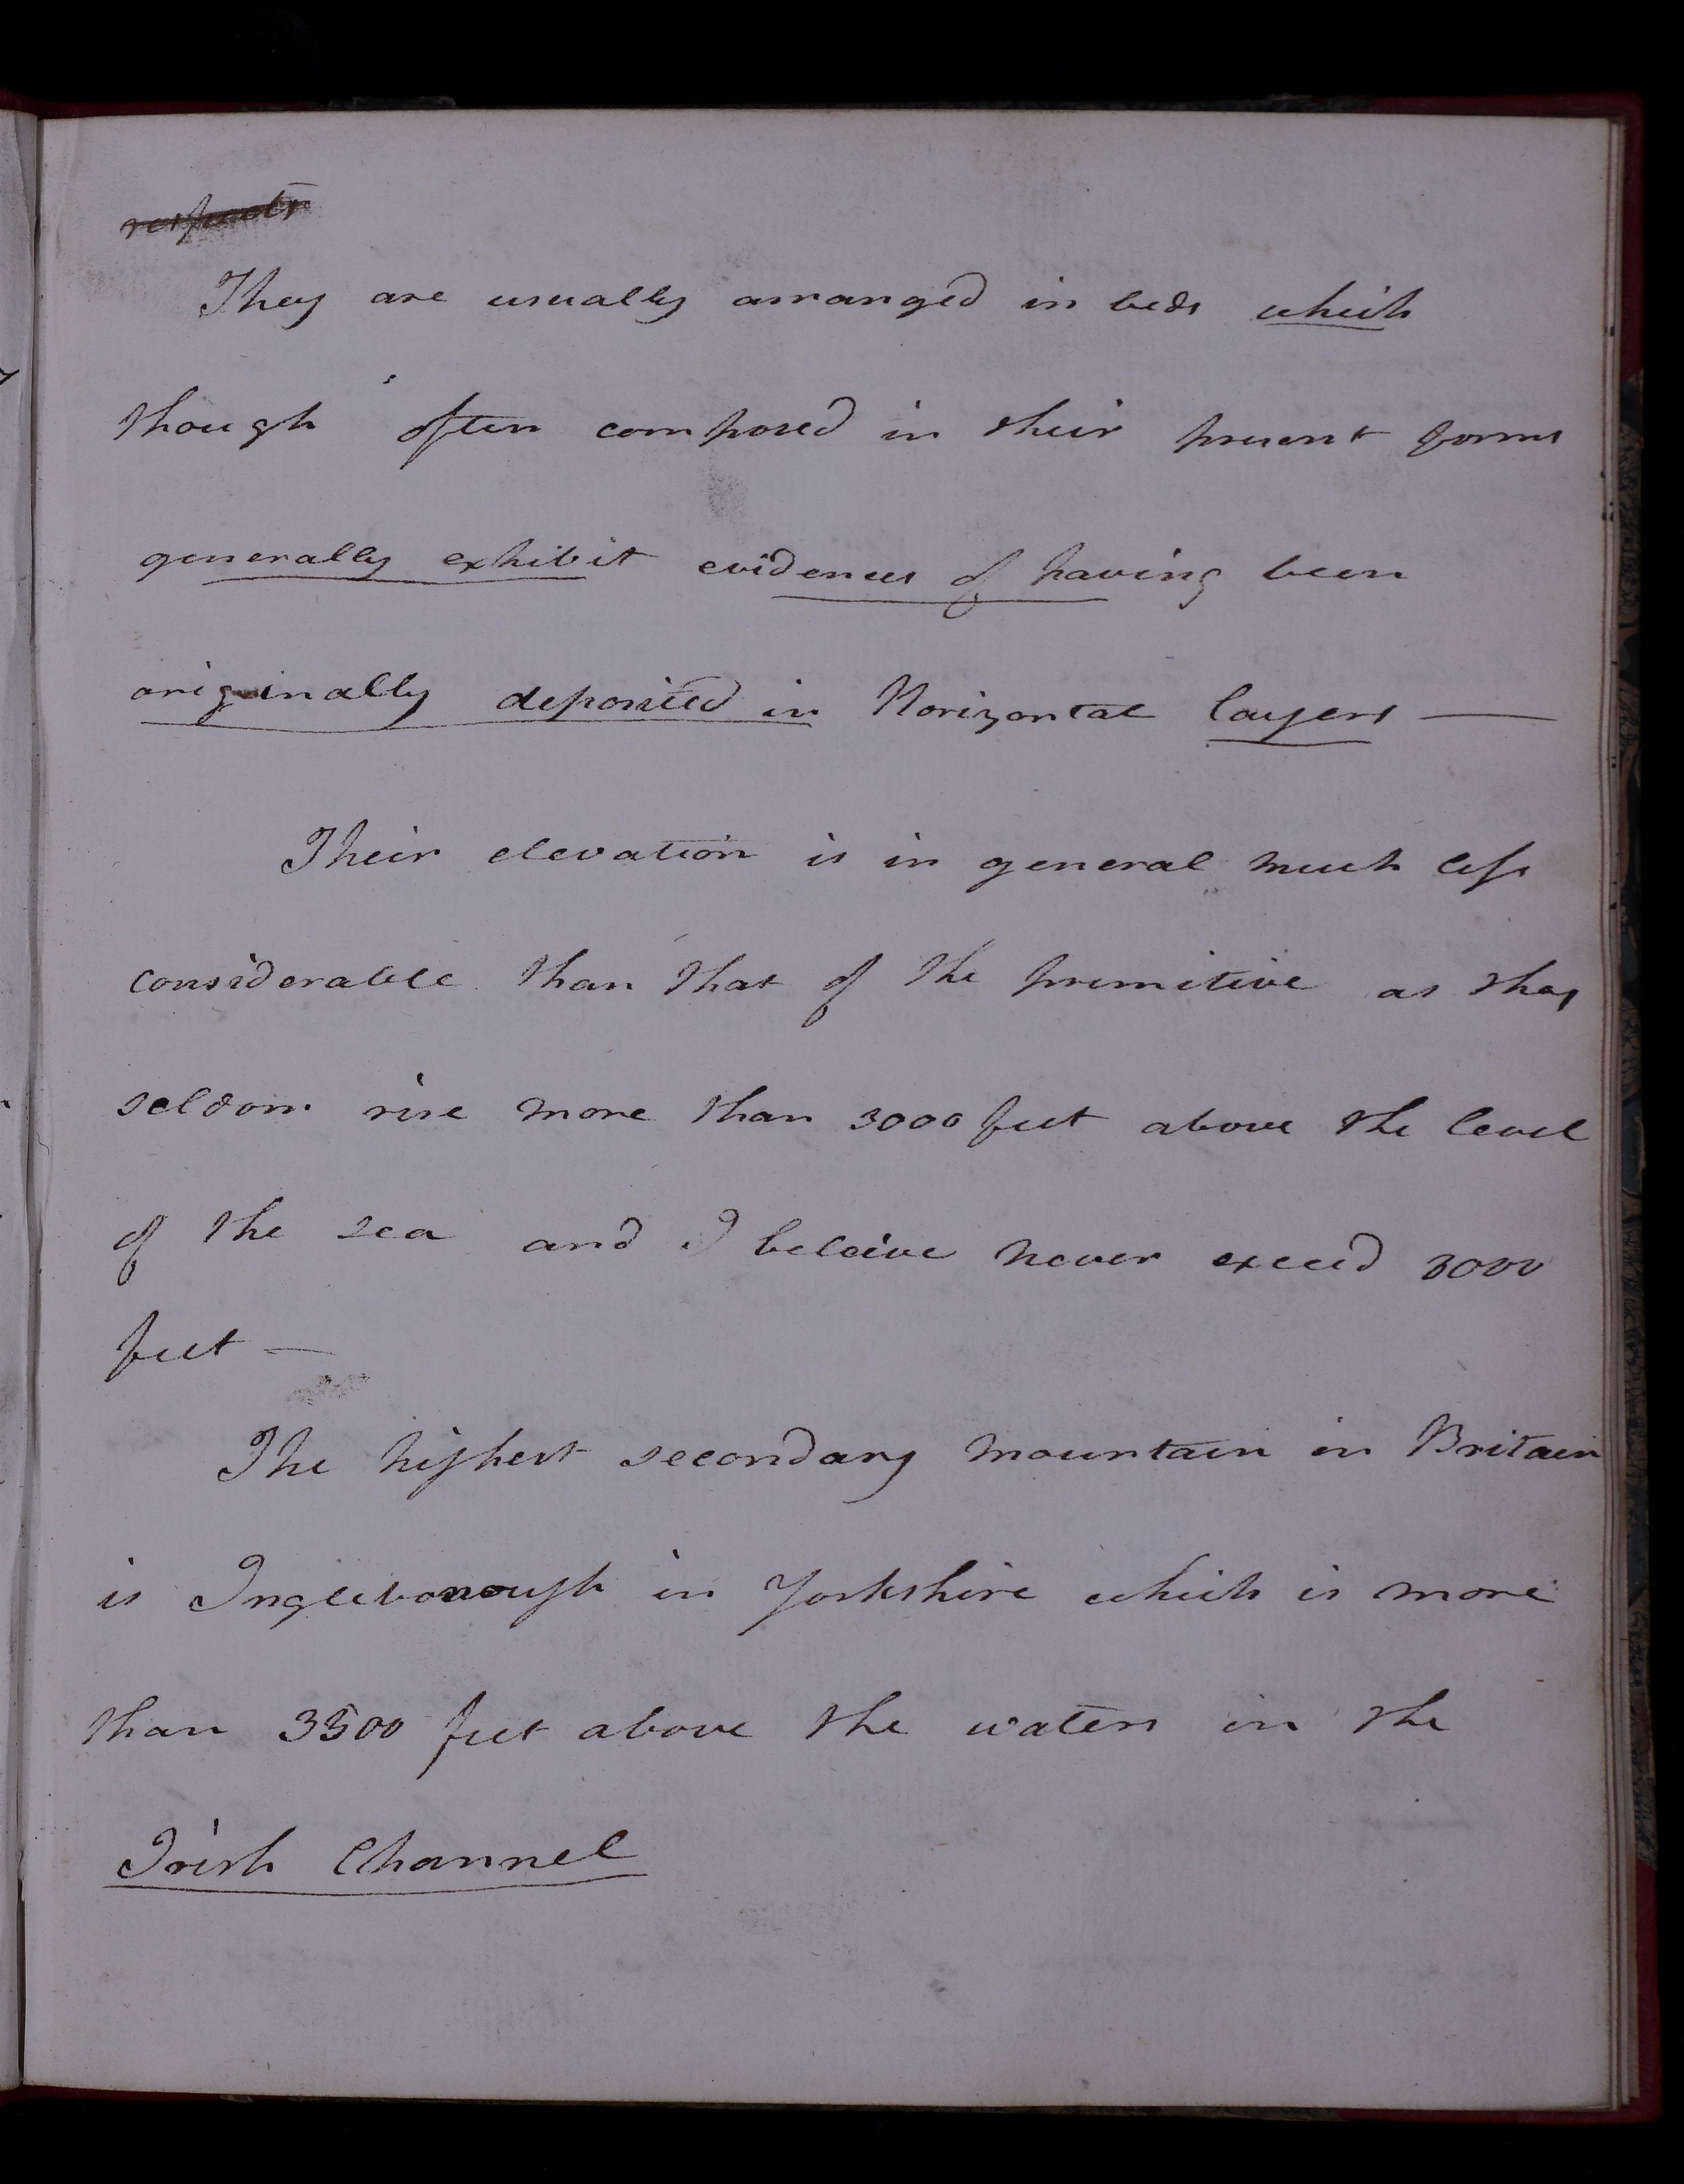 respects
They are usually arranged in beds which
though often composed in their present forms
generally exhibit evidences of having been
originally deposited in Horizontal layers —
Their elevation is in general much less
considerable than that of the primitive as they
seldom rise more than 3000 feet above the level
of the sea and I beleive never exceed 8000
feet —
The highest secondary mountain in Britain
is Ingleborough in Yorkshire which is more
than 3500 feet above the waters in the
Irish Channel